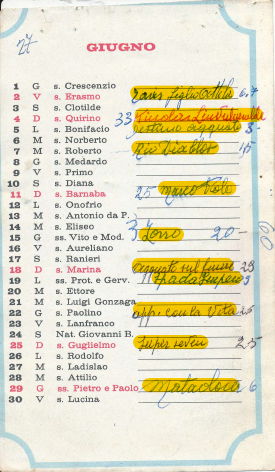 27
GIUGNO
1 G s. Crescenzio
2 V s. Erasmo 6.7
3 S s. Clotilde
4 D s. Quirino 33
5 L s. Bonifacio
6 M s. Norberto
7 M s. Roberto Rio Diablos 15
8 G s. Medardo
9 V s. Primo
10 S s. Diana
11 D s. Barnaba 25 Marco Polo
12 L s. Onofrio
13 M s. Antonio da P.
14 M s. Eliseo
15 G ss. Vito e Mod. Zorro 20-
16 V s. Aureliano
17 S s. Ranieri
18 D s. Marina agguato sul fiume 23
19 L ss. Prot. e Gerv.
20 M s. Ettore
21 M s. Luigi Gonzaga
22 G s. Paolino app. con la Vita 25
23 V s. Lanfranco
24 S Nat. Giovanni B.
25 D s. Guglielmo Super seven 25
26 L s. Rodolfo
27 M s. Ladislao
28 M s. Attilio
29 G ss. Pietro e Paolo 6
30 V s. Lucina